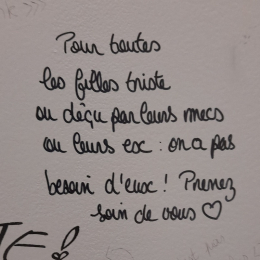 Pour toutes
les filles triste
ou déçu par leurs mecs
ou leurs ex : on a pas
besoin d'eux ! Prenez
soin de vous ♡
TE !